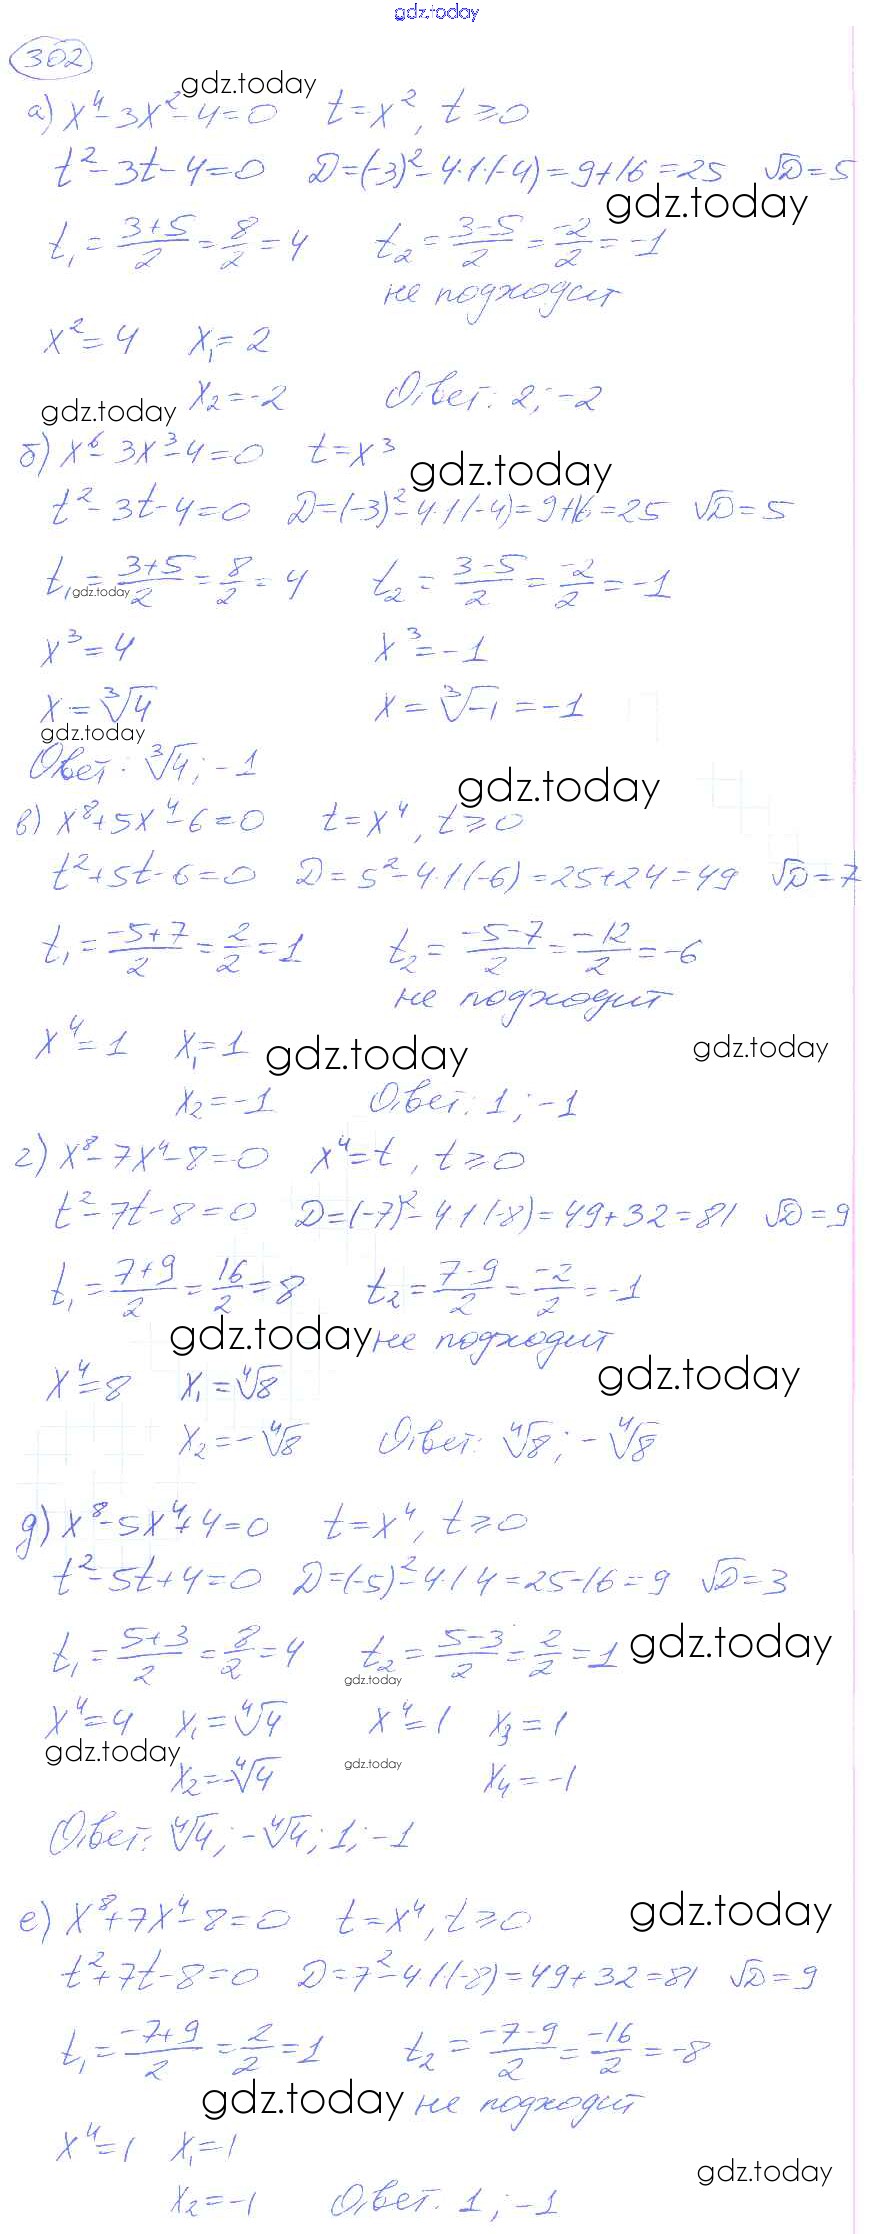 gdz.today
302
gdz.today
а) x⁴-3x²-4=0 t=x², t≥0
t²-3t-4=0 D=(-3)²-4·1·(-4)=9+16=25 √D=5
gdz.today
t₁=(3+5)/2=8/2=4 t₂=(3-5)/2=-2/2=-1
не подходит
x²=4 x₁=2
x₂=-2 Ответ: 2; -2
gdz.today
б) x⁶-3x³-4=0 t=x³
gdz.today
t²-3t-4=0 D=(-3)²-4·1·(-4)=9+16=25 √D=5
t₁=(3+5)/2=8/2=4 t₂=(3-5)/2=-2/2=-1
gdz.today
x³=4 x³=-1
x=∛4 x=∛-1=-1
gdz.today
Ответ: ∛4; -1
gdz.today
в) x⁸+5x⁴-6=0 t=x⁴, t≥0
t²+5t-6=0 D=5²-4·1·(-6)=25+24=49 √D=7
t₁=(-5+7)/2=2/2=1 t₂=(-5-7)/2=-12/2=-6
не подходит
x⁴=1 x₁=1
gdz.today gdz.today
x₂=-1 Ответ: 1; -1
г) x⁸-7x⁴-8=0 x⁴=t, t≥0
t²-7t-8=0 D=(-7)²-4·1·(-8)=49+32=81 √D=9
t₁=(7+9)/2=16/2=8 t₂=(7-9)/2=-2/2=-1
gdz.today не подходит
gdz.today
x⁴=8 x₁=∜8
x₂=-∜8 Ответ: ∜8; -∜8
д) x⁸-5x⁴+4=0 t=x⁴, t≥0
t²-5t+4=0 D=(-5)²-4·1·4=25-16=9 √D=3
t₁=(5+3)/2=8/2=4 t₂=(5-3)/2=2/2=1 gdz.today
gdz.today
x⁴=4 x₁=∜4 x⁴=1 x₃=1
gdz.today gdz.today
x₂=-∜4 x₄=-1
Ответ: ∜4; -∜4; 1; -1
gdz.today
е) x⁸+7x⁴-8=0 t=x⁴, t≥0
t²+7t-8=0 D=7²-4·1·(-8)=49+32=81 √D=9
t₁=(-7+9)/2=2/2=1 t₂=(-7-9)/2=-16/2=-8
gdz.today не подходит
x⁴=1 x₁=1
gdz.today
x₂=-1 Ответ. 1; -1